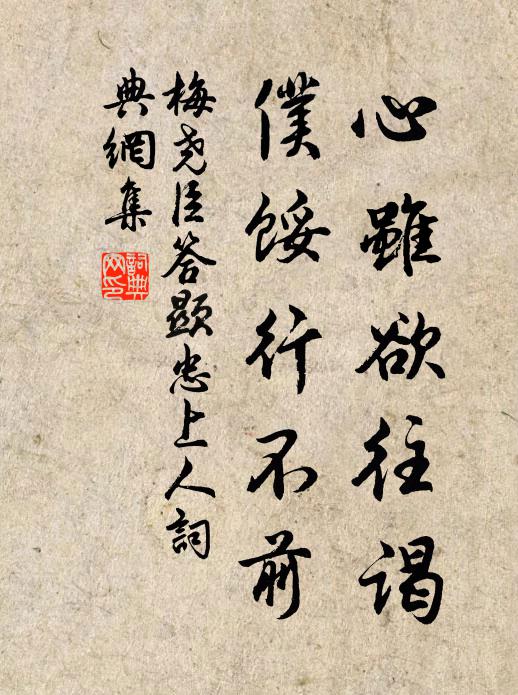 心雖欲往謁
僕餒行不前
梅堯臣答顯忠上人詞
典網集
詞典网印